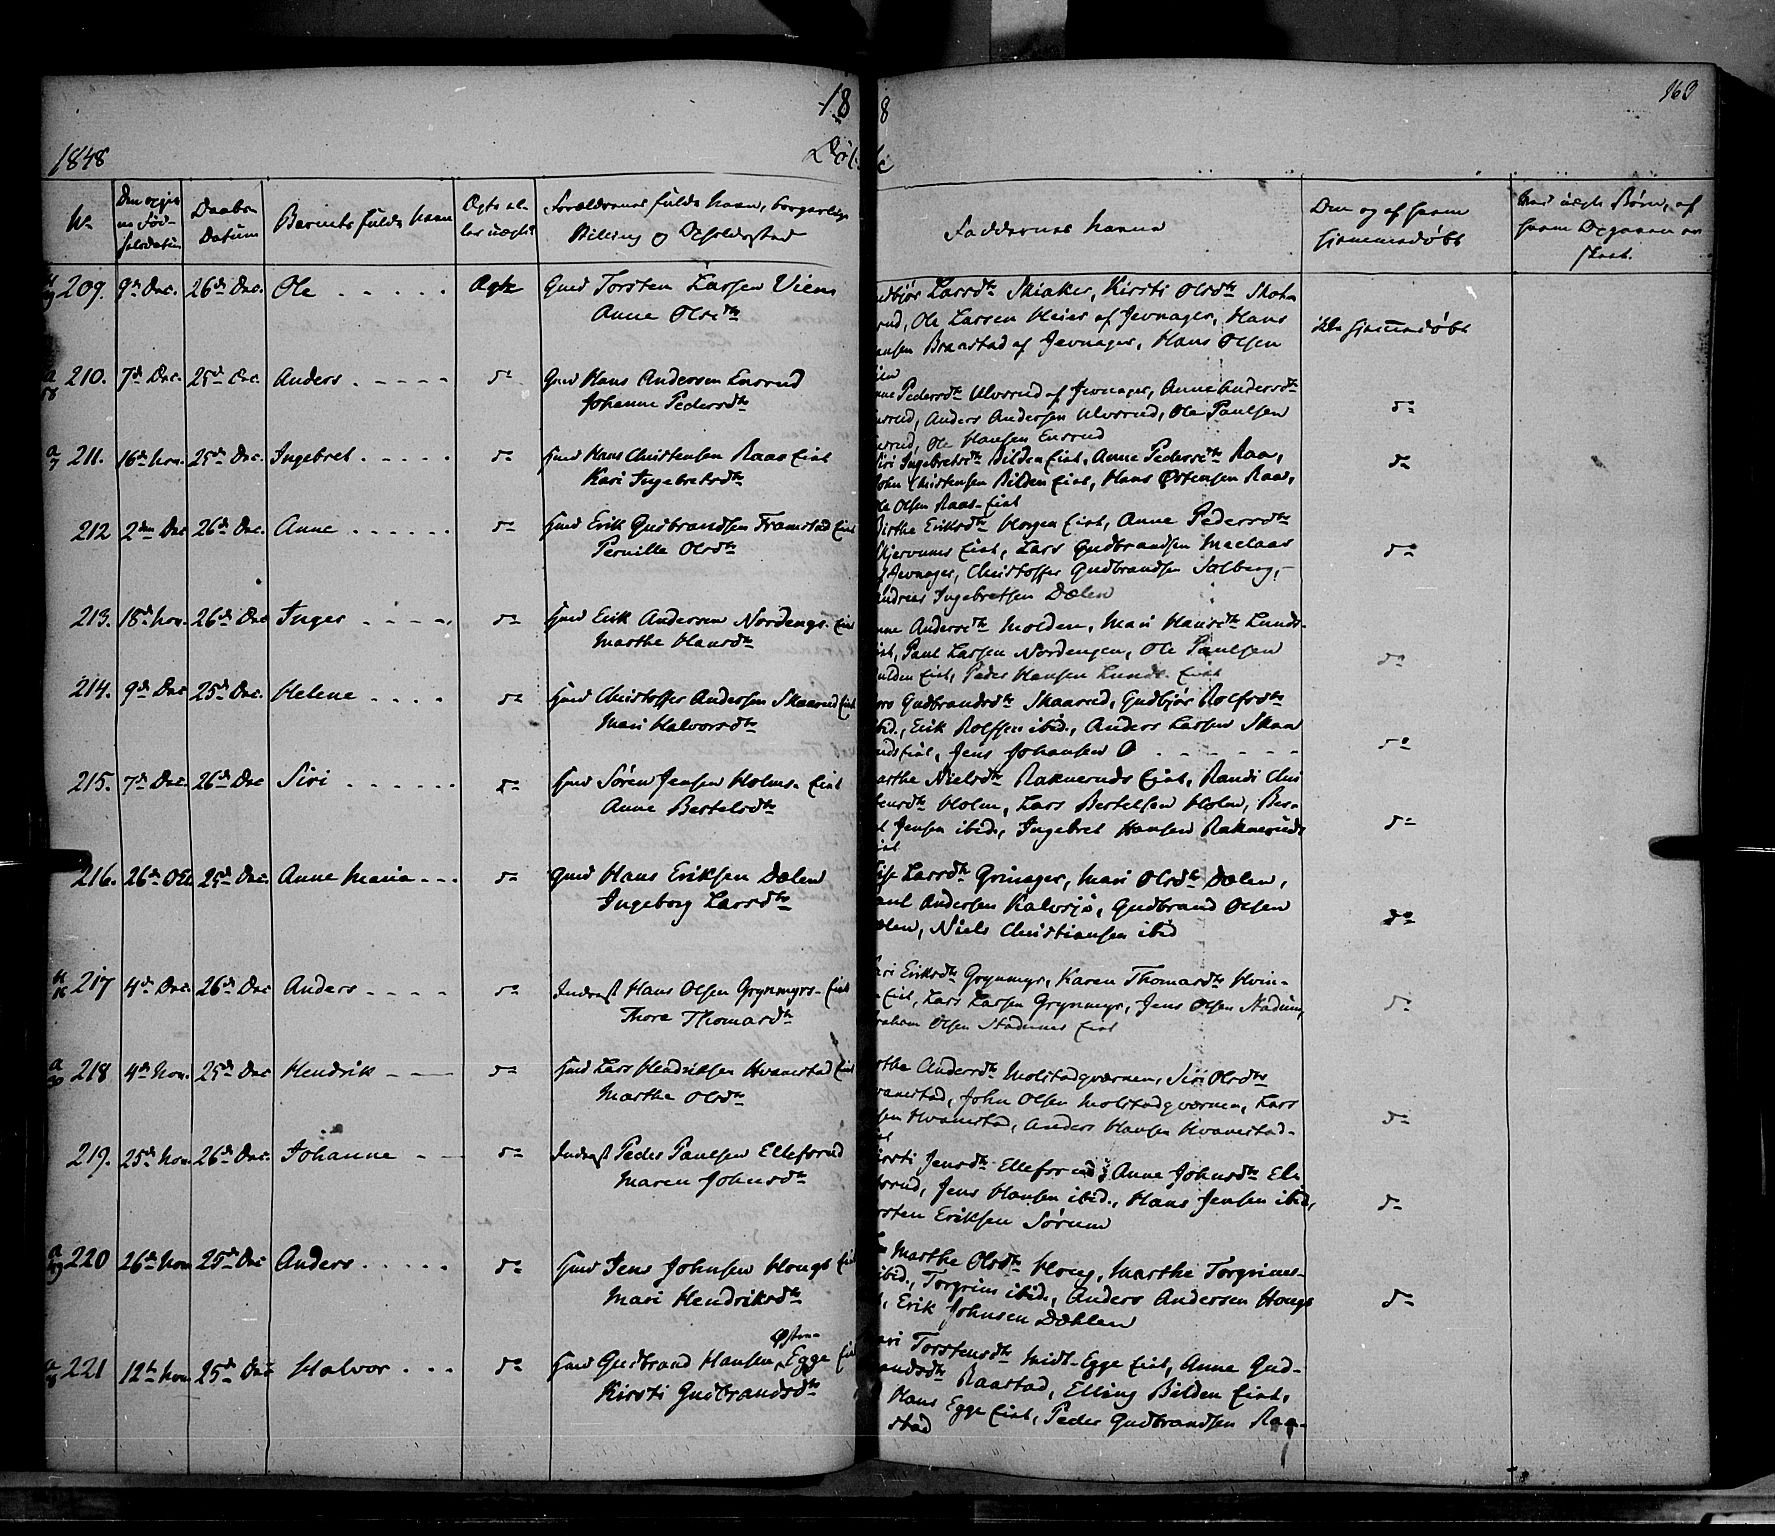 18
8
163
1848
Døbte
No
Den egne Fødselsdatum
Daabs Datum
Barnets fulde Navn
Ægte eller uægte
Forældrenes fulde Navn, borgerlige Stilling og Opholdssted
Faddernes Navne
Om og af hvem hjemmedøbt
209. 9de Dec. 26de Dec. Ole Ægte Gmd Torsten Larsen Vien
Anne Olsdtr
Larsdtr Skiaker, Kirsti Olsdtr
Ole Larsen af Jevnager, Hans
Braastad af Jevnager, Hans Olsen
Ikke hjemmedøbt
210. 7de Dec. 25de Dec. Anders do Gmd Hans Andersen Ensrud
Johanne Pedersdtr
Pedersdtr Ulverud af Jevnager, Anne Andersdtr
Anders Andersen Ulverud, Ole Paulsen
Ole Hansen Ensrud
do
211. 16de Nov. 25de Dec. Ingebret do Hmd Hans Christensen Raas Eiet
Kari Ingebretsdtr
Siri Ingebretsdtr Bilden Eiet, Anne Pedersdtr Raas,
John Christensen Bilden Eiet, Hans Østensen Raas,
Ole Olsen Raas-Eiet
do
212 2den Dec 26de Dec. Anne do Hmd Erik Gudbrandsen Framstad Eiet
Pernille Olsdtr
Birthe Eriksdtr Horgen Eiet, Anne Pedersdtr
Skjervums Eiet, Lars Gudbrandsen
af Jevnager, Christoffer Gudbrandsen Solberg,
Andreas Ingebretsen Dælen
do
213. 18de Nov. 26de Dec Inger do Hmd Erik Andersen Nordengs-Eiet
Marthe Hansdtr
Andersdtr Molden, Mari Hansdtr Lunds-
Paul Larsen Nordengen, Ole Paulsen
Eiet, Peder Hansen Lunds-Eiet
do
214. 9de Dec 25de Dec. Helene do Hmd Christoffer Andersen Skaarud Eiet
Mari Halvorsdtr
Gudbrandsdtr Skaarud, Gudbjør Rolfsdtr
ibid., Erik Rolfsen ibid., Anders Larsen Skaa
Eiet, Jens Johansen
do
215. 7de Dec. 26de Dec Siri do Hmd Søren Jensen Holms-Eiet
Anne Bertelsdtr
Marthe Nielsdtr Rakneruds Eiet, Randi Chri
Holm, Lars Bertelsen Holm, Ber-
Jensen ibid., Ingebret Hansen Rakneruds
do
216. 26de Oct. 25de Dec. Anne Maria do Gmd Hans Eriksen Dælen
Ingeborg Larsdtr
Larsdtr Grinager, Mari Olsdtr Dælen,
Paul Andersen Kalvsjø, Gudbrand Olsen
Niels Christiansen ibid
do
217 4de Dec. 26de Dec Anders do Inderst Hans Olsen Grynmyrs-Eiet
Thore Thomasdtr
Eriksdtr Grynmyr, Karen Thomasdtr Hvin-
Eiet, Lars Larsen Grynmyr, Jens Olsen Stadum,
Olsen Stadums Eiet
do
218 4de Nov. 25de Dec Hendrik do Hmd Lars Hendriksen Hvanestad Eiet
Marthe Olsdtr
Andersdtr Molstadqværnen, Siri Olsdtr
Hvanestad, John Olsen Molstadqværnen, Lars
Hvanestad, Anders Hansen Hvanestad-
do
219. 25de Nov. 26de Dec. Johanne do Inderst Peder Paulsen Ellefsrud
Maren Johnsdtr
Kirsti Jensdtr Ellefsrud, Anne Johnsdtr Ell
Jens Hansen ibid., Hans Jensen ibid.,
Eriksen Sørum
do
220 26de Nov 25de Dec Anders do Hmd Jens Johnsen Hougs Eiet
Mari Hendriksdtr
Marthe Olsdtr Houg, Marthe Torgrims-
ibid., Torgrim ibid., Anders Andersen Hougs
Erik Johnsen Dæhlen
do
221 12te Nov 25de Dec Halvor do Hmd Gudbrand Hansen Østen-Egge Eiet
Kirsti Gudbrandsdtr
Kari Torstensdtr Midt-Egge Eiet, Anne Gud-
brandsdtr Raastad, Elling Bilden Eiet,
Hans Egge Eiet, Peder Gudbrandsen Raa-
stad